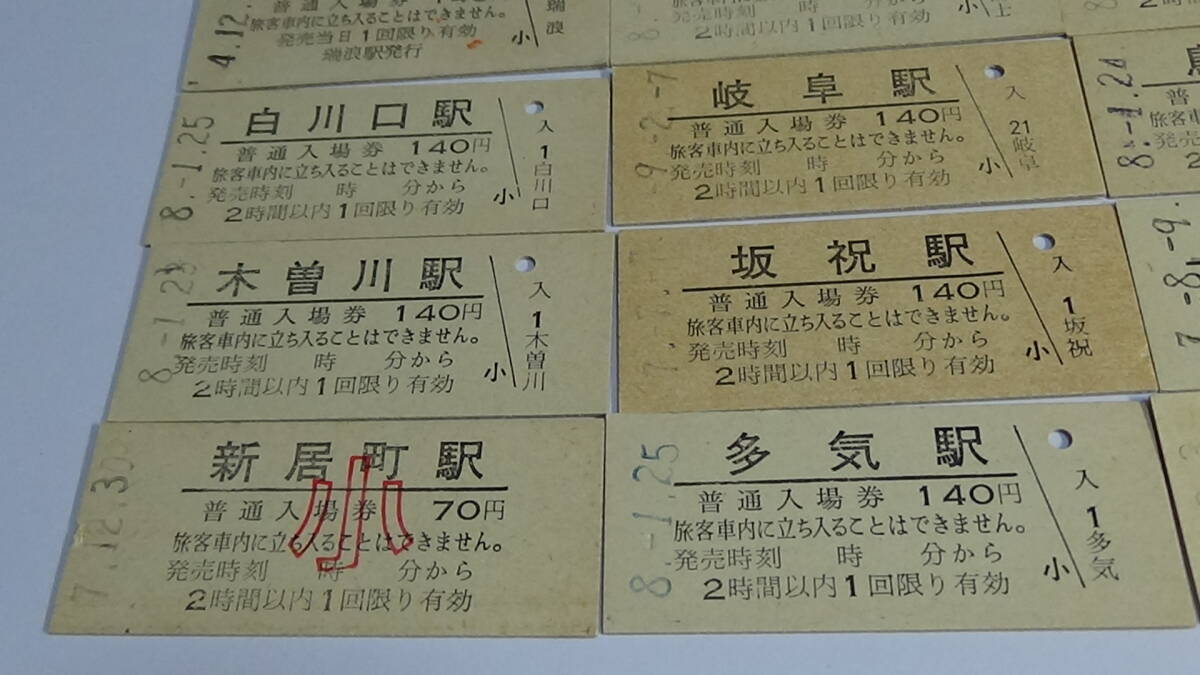 4.12.
旅客車内に立ち入ることはできません。
発売当日1回限り有効
瑞浪駅発行
小
瑞浪
8
小
士
8.-1.25
白川口駅
普通入場券 140円
旅客車内に立ち入ることはできません。
発売時刻 時 分から
2時間以内1回限り有効
小
入
1
白川口
-9.-2.-7
岐阜駅
普通入場券 140円
旅客車内に立ち入ることはできません。
発売時刻 時 分から
2時間以内1回限り有効
小
入
21
岐阜
8.-1.24
普
旅客
発売
2
8-1.23
木曽川駅
普通入場券 140円
旅客車内に立ち入ることはできません。
発売時刻 時 分から
2時間以内1回限り有効
小
入
1
木曽川
坂祝駅
普通入場券 140円
旅客車内に立ち入ることはできません。
発売時刻 時 分から
2時間以内1回限り有効
小
入
1
坂祝
7-8.-9.
7.12.30
新居町駅
普通入場券 70円
旅客車内に立ち入ることはできません。
発売時刻 時 分から
2時間以内1回限り有効
小
8.-1.25
多気駅
普通入場券 140円
旅客車内に立ち入ることはできません。
発売時刻 時 分から
2時間以内1回限り有効
小
入
1
多気